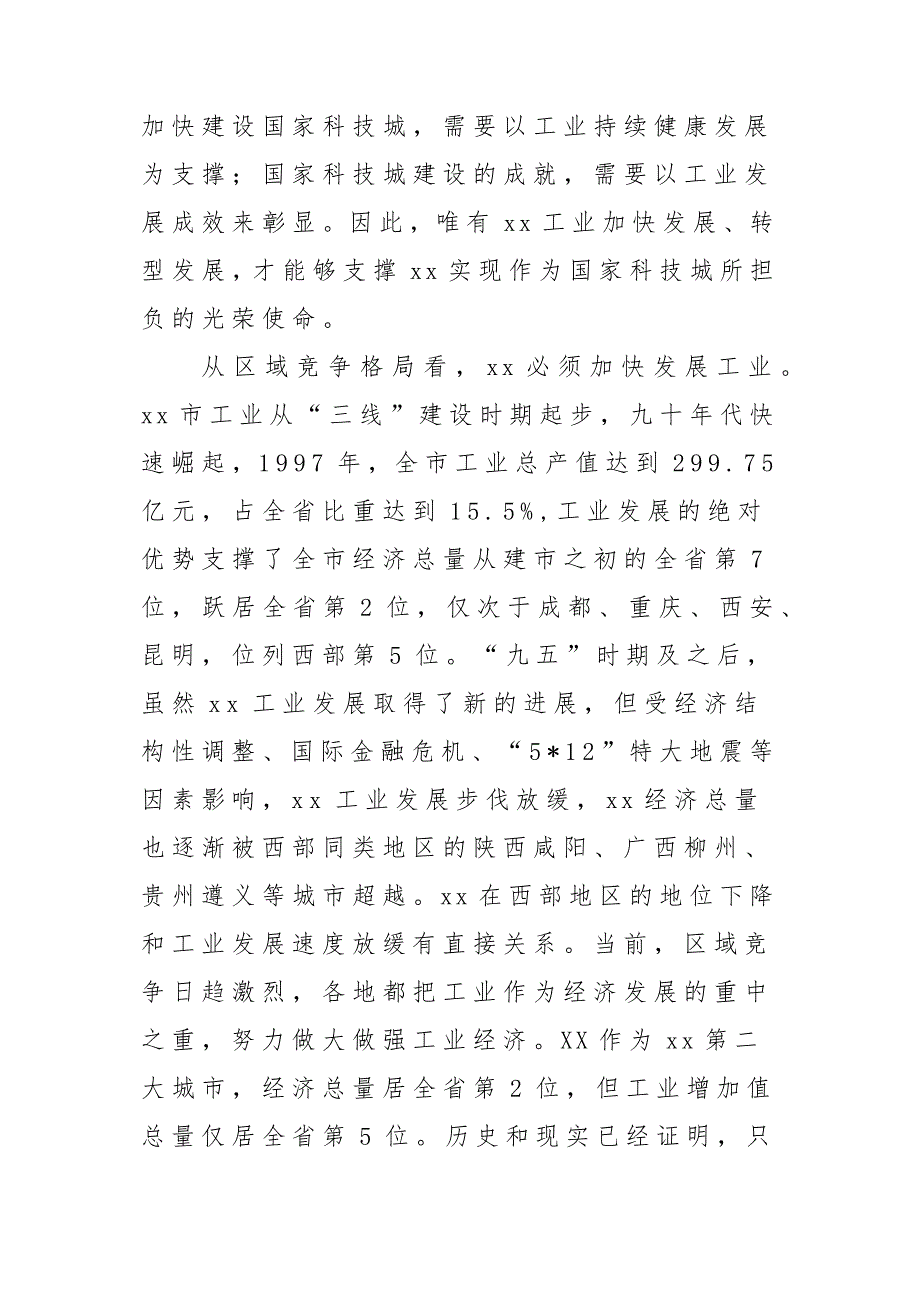 加快建设国家科技城，需要以工业持续健康发展
为支撑；国家科技城建设的成就，需要以工业发
展成效来彰显。因此，唯有 xx 工业加快发展、转
型发展，才能够支撑 xx 实现作为国家科技城所担
负的光荣使命。
从区域竞争格局看，xx 必须加快发展工业。
xx 市工业从“三线”建设时期起步，九十年代快
速崛起，1997 年，全市工业总产值达到 299.75
亿元，占全省比重达到 15.5%,工业发展的绝对
优势支撑了全市经济总量从建市之初的全省第 7
位，跃居全省第 2 位，仅次于成都、重庆、西安、
昆明，位列西部第 5 位。“九五”时期及之后，
虽然 xx 工业发展取得了新的进展，但受经济结
构性调整、国际金融危机、“5*12”特大地震等
因素影响，xx 工业发展步伐放缓，xx 经济总量
也逐渐被西部同类地区的陕西咸阳、广西柳州、
贵州遵义等城市超越。xx 在西部地区的地位下降
和工业发展速度放缓有直接关系。当前，区域竞
争日趋激烈，各地都把工业作为经济发展的重中
之重，努力做大做强工业经济。XX 作为 xx 第二
大城市，经济总量居全省第 2 位，但工业增加值
总量仅居全省第 5 位。历史和现实已经证明，只